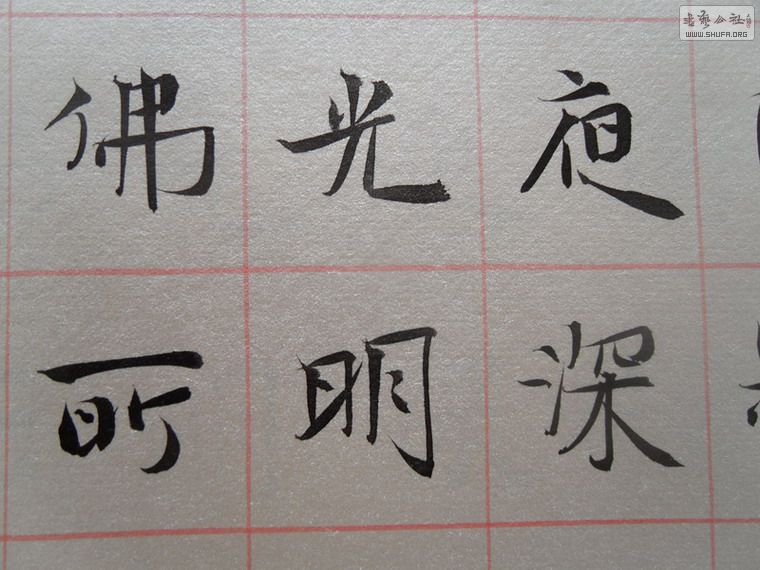 夜深
光明
佛所
书艺公社
WWW.SHUFA.ORG